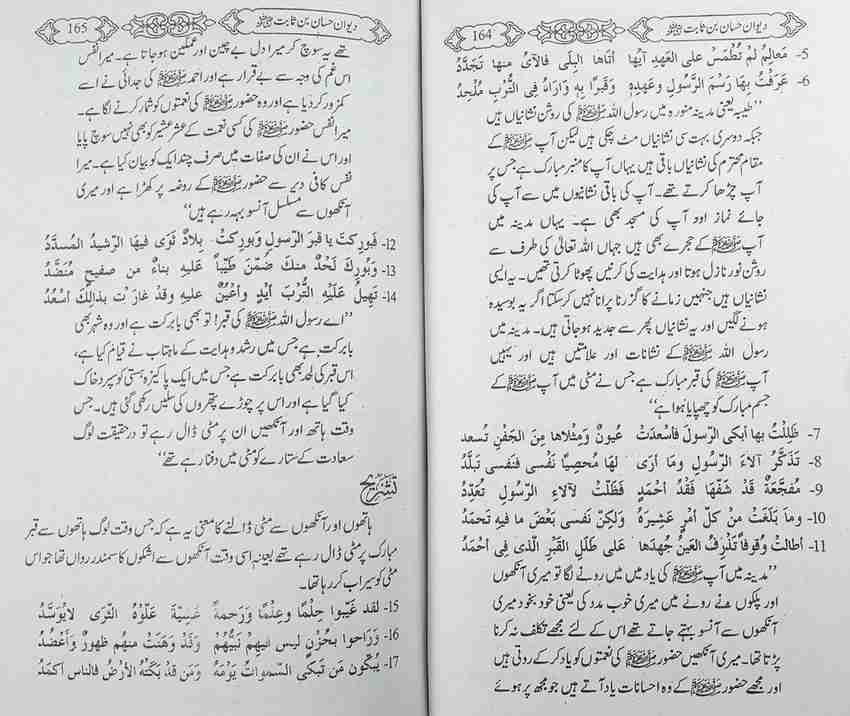 دیوان حسان بن ثابت رضی اللہ عنہ 164
5- مَعالِمُ لمْ تُطْمَسْ على العَهدِ آيُها أتَاهَا البِلَى فالآىُ منها تَجَدَّدُ
6- عَرَفْتُ بهَا رَسْمَ الرَّسُولِ وعَهدِهِ وَقَبرًا بِهِ وَارَاهُ فِى التُّرْبِ مُلْحِدُ
"طیبہ یعنی مدینہ منورہ میں رسول اللہ ﷺ کی روشن نشانیاں ہیں
جبکہ دوسری بہت سی نشانیاں مٹ چکی ہیں لیکن آپ ﷺ کے
مقام محترم کی نشانیاں باقی ہیں یہاں آپ کا منبر مبارک ہے جس پر
آپ چڑھا کرتے تھے۔ آپ کی باقی نشانیوں میں سے آپ کی
جائے نماز اور آپ کی مسجد بھی ہے۔ یہاں مدینہ میں
آپ ﷺ کے حجرے بھی ہیں جہاں اللہ تعالیٰ کی طرف سے
روشن نور نازل ہوتا اور ہدایت کی کرنیں پھوٹا کرتی تھیں۔ یہ ایسی
نشانیاں ہیں جنہیں زمانے کا گزرنا پرانا نہیں کرسکتا اگر یہ بوسیدہ
ہونے لگیں اور یہ نشانیاں پھر سے جدید ہو جاتی ہیں۔ مدینہ میں
رسول اللہ ﷺ کے نشانات اور علامتیں ہیں اور یہیں
آپ ﷺ کی قبر مبارک ہے جس نے مٹی میں آپ ﷺ کے
جسم مبارک کو چھپایا ہوا ہے"
7- ظَلِلْتُ بها أبكى الرّسولَ فأسْعَدَتْ عُيونٌ وَمِثْلاها مِنَ الجَفْنِ تُسعد
8- تَذَكَّرُ آلاءَ الرَّسُولِ وما أرَى لهَا مُحصِيًا نَفْسى فنَفسى تبَلَّدُ
9- مُفَجَّعَةٌ قَدْ شَفَّهَا فَقْدُ أحْمَدٍ فَظَلَّتْ لآلاءِ الرَّسُولِ تُعَدِّدُ
10- ومَا بَلَغَتْ مِنْ كلّ أمْرٍ عَشِيرَهُ ولكِنّ نَفسى بَعْضَ ما فيه تَحمَدُ
11- أطالتْ وُقوفًا تَذْرِفُ العَينُ جُهدَها على طَلَلِ القَبْرِ الَّذى فِى أحْمَدُ
"مدینہ میں آپ ﷺ کی یاد میں میں رونے لگا تو میری آنکھوں
اور پلکوں نے رونے میں میری خوب مدد کی یعنی خود بخود میری
آنکھوں سے آنسو بہتے جاتے تھے اس کے لئے مجھے تکلف نہ کرنا
پڑتا تھا۔ میری آنکھیں حضور ﷺ کی نعمتوں کو یاد کر کے روتی ہیں
اور مجھے حضور ﷺ کے وہ احسانات یاد آتے ہیں جو مجھ پر ہوئے
دیوان حسان بن ثابت رضی اللہ عنہ 165
تھے یہ سوچ کر میرا دل بے چین اور غمگین ہو جاتا ہے۔ میرا نفس
اس غم کی وجہ سے بے قرار ہے اور احمد ﷺ کی جدائی نے اسے
کمزور کر دیا ہے اور وہ حضور ﷺ کی نعمتوں کو شمار کرنے لگا ہے۔
میرا نفس حضور ﷺ کی کسی نعمت کے عشر عشیر کو بھی نہیں سوچ پایا
اور اس نے ان کی صفات میں صرف چند ایک کو بیان کیا ہے۔ میرا
نفس کافی دیر سے حضور ﷺ کے روضہ پر کھڑا ہے اور میری
آنکھوں سے مسلسل آنسو بہہ رہے ہیں"
12- فَبورِكتَ يا قبرَ الرّسولِ وبورِكتْ بِلادٌ ثَوَى فيهَا الرّشيدُ المُسدَّدُ
13- وَبُورِكَ لَحْدٌ منكَ ضُمّنَ طَيّبًا عَلَيهِ بناءٌ من صفيحٍ مُنَضَّدُ
14- تَهِيلُ عَلَيْهِ التُّرْبَ أيْدٍ وأعْيُنٌ عليهِ وقدْ غارَتْ بذالِكَ أسْعُدُ
"اے رسول اللہ ﷺ کی قبر! تو بھی بابرکت ہے اور وہ شہر بھی
بابرکت ہے جس میں رشد و ہدایت کے ماہتاب نے قیام کیا ہے،
اس قبر کی لحد بھی بابرکت ہے جس میں ایک پاکیزہ ہستی کو سپرد خاک
کیا گیا ہے اور اس پر چوڑے پتھروں کی سلیں رکھی گئی ہیں۔ جس
وقت ہاتھ اور آنکھیں ان پر مٹی ڈال رہے تو درحقیقت لوگ
سعادت کے ستارے کو مٹی میں دفنا رہے تھے"
تشریح
ہاتھوں اور آنکھوں سے مٹی ڈالنے کا معنی یہ ہے کہ جس وقت لوگ ہاتھوں سے قبر
مبارک پر مٹی ڈال رہے تھے بعینہ اسی وقت آنکھوں سے اشکوں کا سمندر رواں تھا جو اس
مٹی کو سیراب کر رہا تھا۔
15- لقد غَيّبوا حِلْمًا وعِلْمًا وَرَحمةً عَشِيّةَ عَلَّوْهُ الثَّرَى لايُوَسَّدُ
16- وَرَاحوا بحُزْنٍ ليس فيهِمْ نَبيُّهُمْ وَقَدْ وَهَنَتْ منهُم ظهورٌ وأعْضُدُ
17- يُبَكّونَ مَن تَبكى السّمواتُ يَوْمَهُ وَمَن قدْ بَكَتْهُ الأرْضُ فالناس أكمَدُ